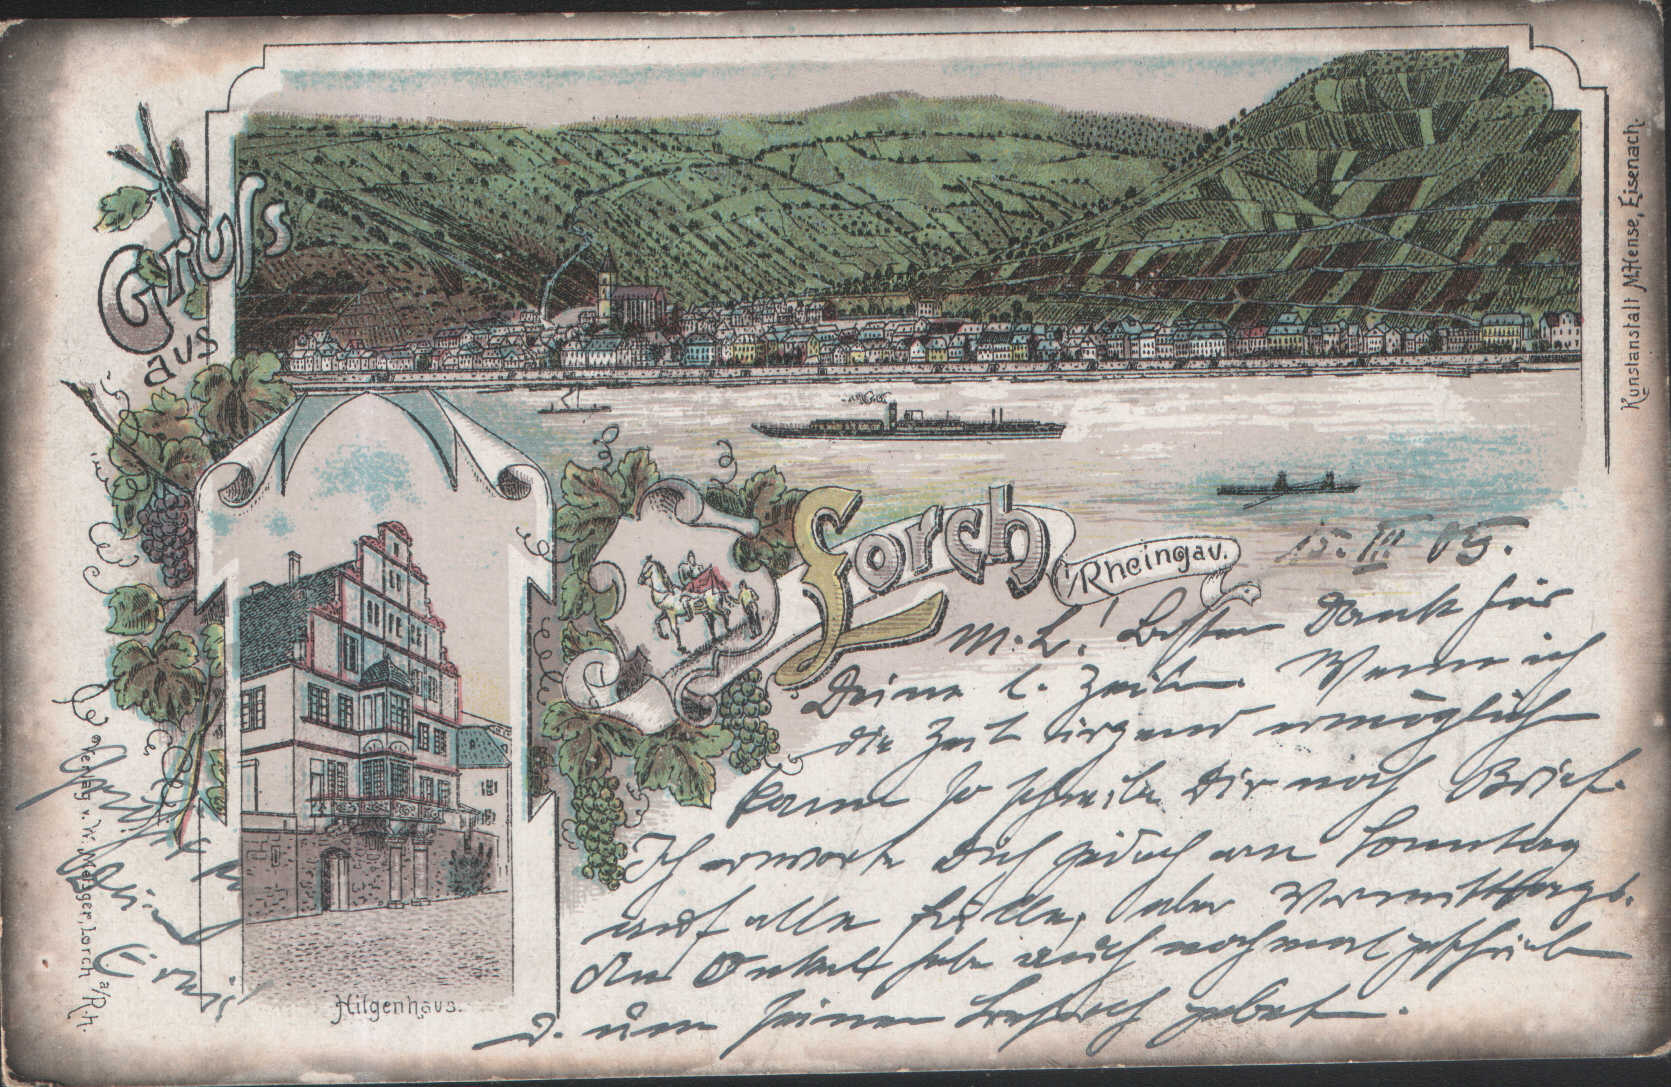 Gruss
aus
Lorch
i/Rheingau.
Kunstanstalt M. Hense, Eisenach.
Hilgenhaus.
Verlag v. W. Metzger, Lorch a/Rh.
15. III 05.
M. L! Besten Dank für
Deine l. Zeilen. Wenn ich
die Zeit irgend ermöglich
kann so schreibe Dir noch Brief.
Ich erwarte Dich jedoch am Sonntag
auf alle Fälle, aber Vormittags.
Den Onkel habe auch nochmal geschrieben
u. um seinen Besuch gebet.